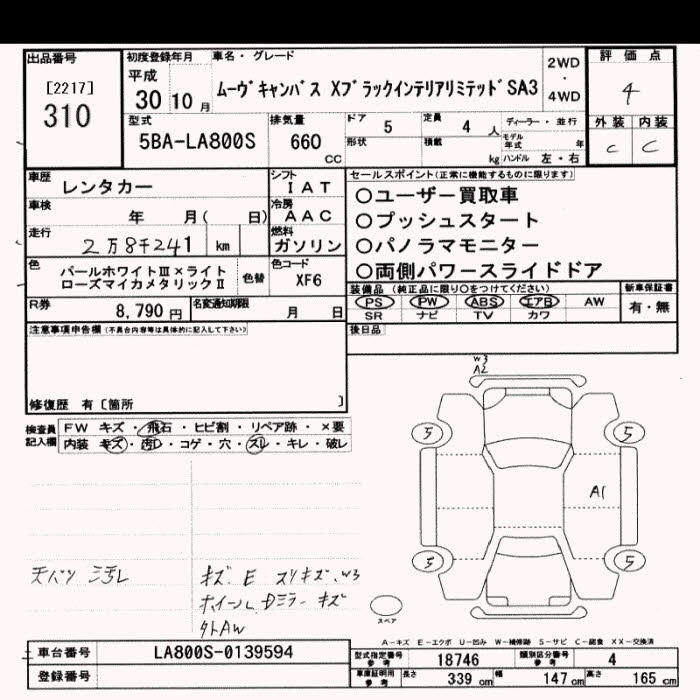 出品番号
[2217]
310
初度登録年月
平成
30 10 月
車名・グレード
ムーヴキャンバス XブラックインテリアリミテッドSA3
2WD
・
4WD
評価点
4
外装 内装
C C
型式
5BA-LA800S
排気量
660
CC
ドア 5
定員 4 人
ディーラー・並行
形状
積載 kg
モデル年式 年
ハンドル 左・右
車歴 レンタカー
シフト
IAT
車検 年 月( 日)
冷房
AAC
走行 2万8千241 km
燃料
ガソリン
色
パールホワイトⅢ×ライト
ローズマイカメタリックⅡ
色替
色コード
XF6
R券 8,790 円
名変通知期限 月 日
セールスポイント(正常に機能するものに限ります)
○ユーザー買取車
○プッシュスタート
○パノラマモニター
○両側パワースライドドア
装備品 (純正品に限り○をつけてください)
新車保証書
PS PW ABS エアB AW
有・無
SR ナビ TV カワ
後日品
注意事項申告欄(不具合内容等は具体的に記入して下さい)
修復歴 有〔箇所 〕
検査員記入欄
FW キズ・飛石・ヒビ割・リペア跡・×要
内装 キズ・汚レ・コゲ・穴・スレ・キレ・破レ
W3
A2
5
5
A1
5
5
スペア
天バリ 汚レ
キズ E スリキズ W3
ホイール Dミラー キズ
外トAW
A-キズ E-エクボ U-凹み W-補修跡 S-サビ C-腐食 XX-交換済
車台番号 LA800S-0139594
登録番号
型式指定番号 参考 18746
類別区分番号 参考 4
車庫証明用 参考
長さ 339 cm
幅 147 cm
高さ 165 cm